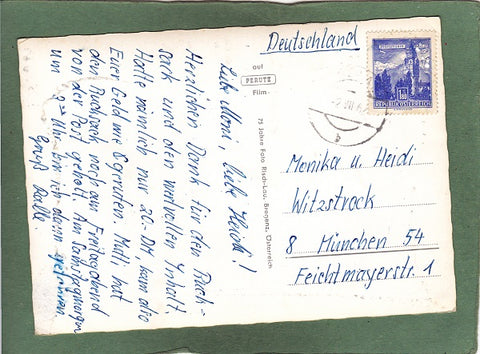 Deutschland
Liebe Moni, liebe Heidi!
Herzlichen Dank für den Ruck-
sack und den wertvollen Inhalt.
Hatte nämlich nur 20.- DM, kam also
Euer Geld wie gerufen. Mutti hat
den Rucksack noch am Freitagabend
von der Post geholt. Am Samstagmorgen
um 3 Uhr bin ich dann
Gruß
auf
PERUTZ
Film
75 Jahre Foto Risch-Lau, Bregenz, Österreich
REPUBLIK ÖSTERREICH
Monika u. Heidi
Witzstrock
8 München 54
Feichtmayerstr. 1